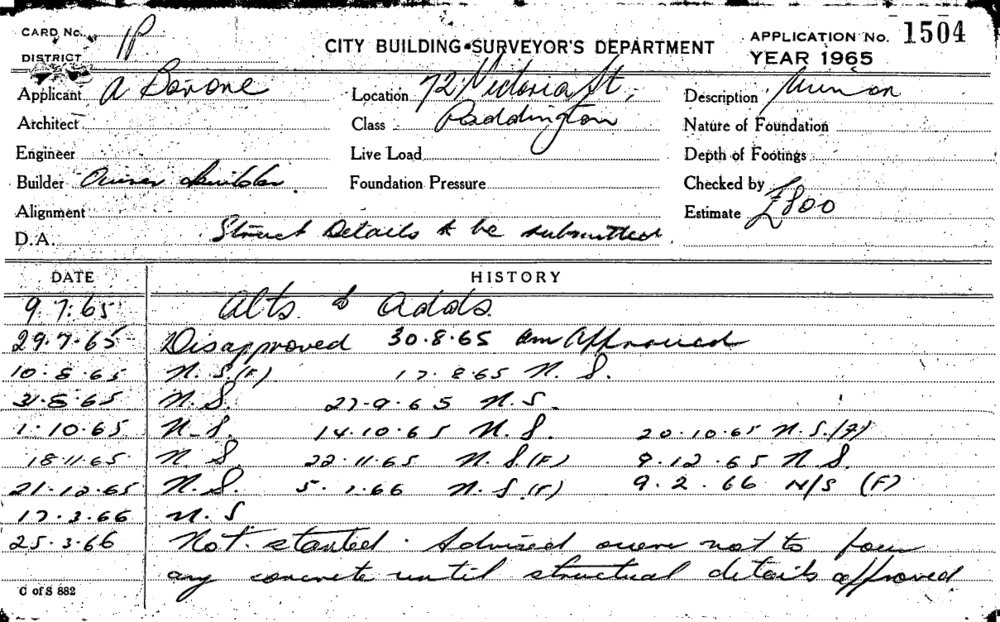 CARD No. IP CITY BUILDING SURVEYOR'S DEPARTMENT APPLICATION No. 1504
DISTRICT YEAR 1965
Applicant A Barone Location 72 Victoria St, Description
Architect Class Paddington Nature of Foundation
Engineer Live Load Depth of Footings
Builder Owner builder. Foundation Pressure Checked by
Alignment Estimate £800
D.A. Struct Details to be submitted
DATE HISTORY
9.7.65 Alts & Adds.
29.7.65 Disapproved 30.8.65 Approved
10.8.65 N.S.(F) 17.8.65 N.S.
31.8.65 N.S. 27.9.65 N.S.
1.10.65 N.S. 14.10.65 N.S. 20.10.65 N.S.(F)
18.11.65 N.S. 22.11.65 N.S.(F) 9.12.65 N.S.
21.12.65 N.S. 5.1.66 N.S.(F) 9.2.66 N/S (F)
17.3.66 N.S
25.3.66 Not started. Advised owner not to pour
any concrete until structural details approved
C of S 882